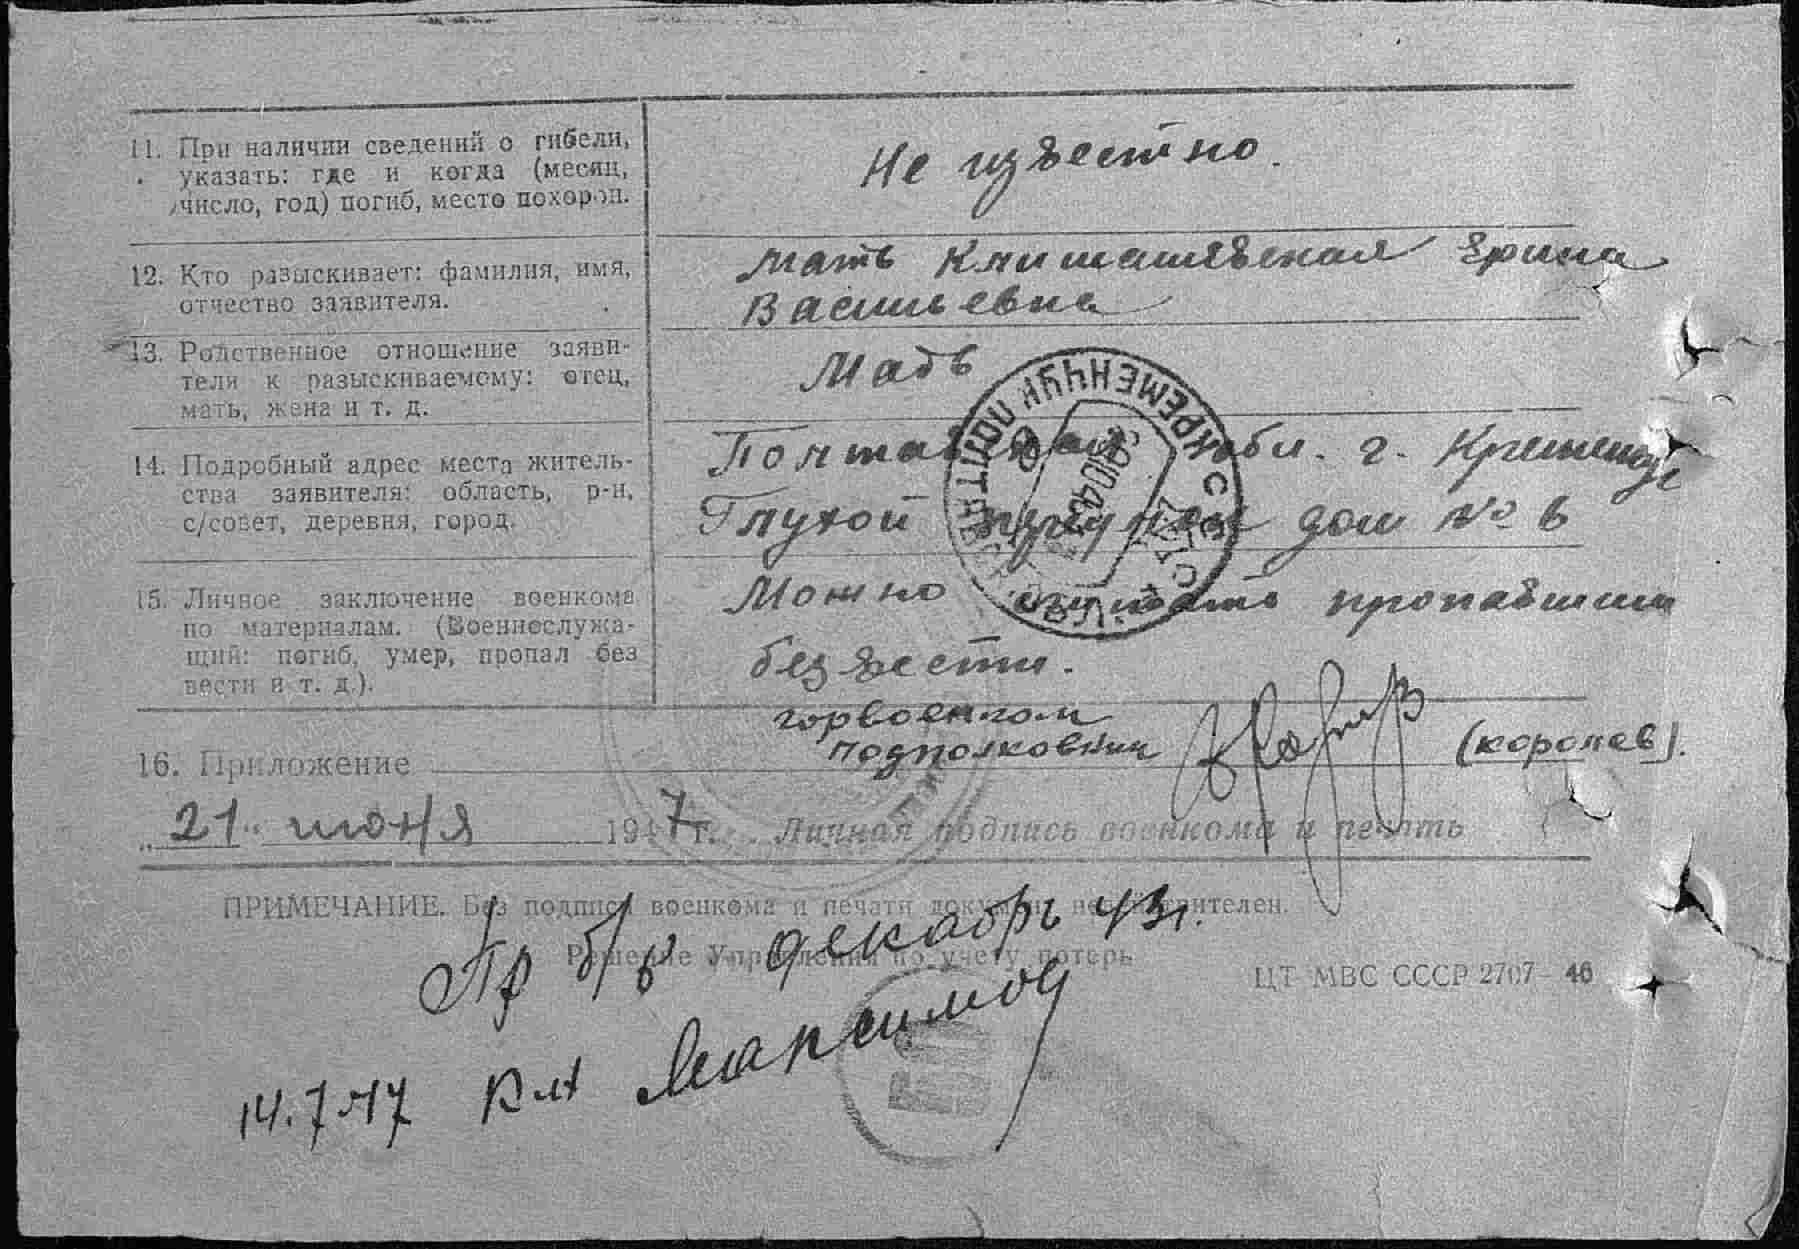 11. При наличии сведений о гибели,
указать: где и когда (месяц,
число, год) погиб, место похорон.
Не известно.
12. Кто разыскивает: фамилия, имя,
отчество заявителя.
мать Климашевская Ерина
Васильевна
13. Родственное отношение заяви-
теля к разыскиваемому: отец,
мать, жена и т. д.
Мать
14. Подробный адрес места житель-
ства заявителя: область, р-н,
с/совет, деревня, город.
Полтавская обл. г. Кременчуг
Глухой переулок дом № 6
15. Личное заключение военкома
по материалам. (Военнослужа-
щий: погиб, умер, пропал без
вести и т. д.).
Можно считать пропавшим
без вести.
горвоенком
подполковник
(королев).
16. Приложение
„21" июня 1947 г. Личная подпись военкома и печать
ПРИМЕЧАНИЕ. Без подписи военкома и печати документ недействителен.
Решение Управления по учету потерь
ЦТ МВС СССР 2707—46
Пр б/в декабрь 43 г.
14.7.47 Максимов
КРЕМЕНЧУК ПОЛТАВСК.